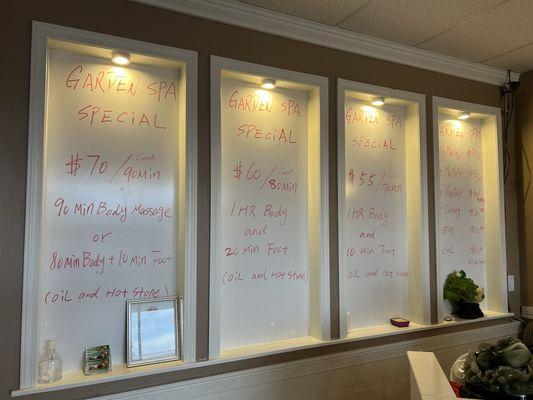 GARDEN SPA
SPECIAL
$70/90min
Cash
90 Min Body Massage
or
80 Min Body + 10 Min Foot
(oil and Hot Stone)
GARDEN SPA
SPECIAL
$60/80min
Cash
1HR Body
and
20 min Foot
(oil and Hot Stone)
GARDEN SPA
SPECIAL
$55/70min
1HR Body
and
10 min Foot
(oil and Hot Stone)
GARDEN SPA
SPECIAL